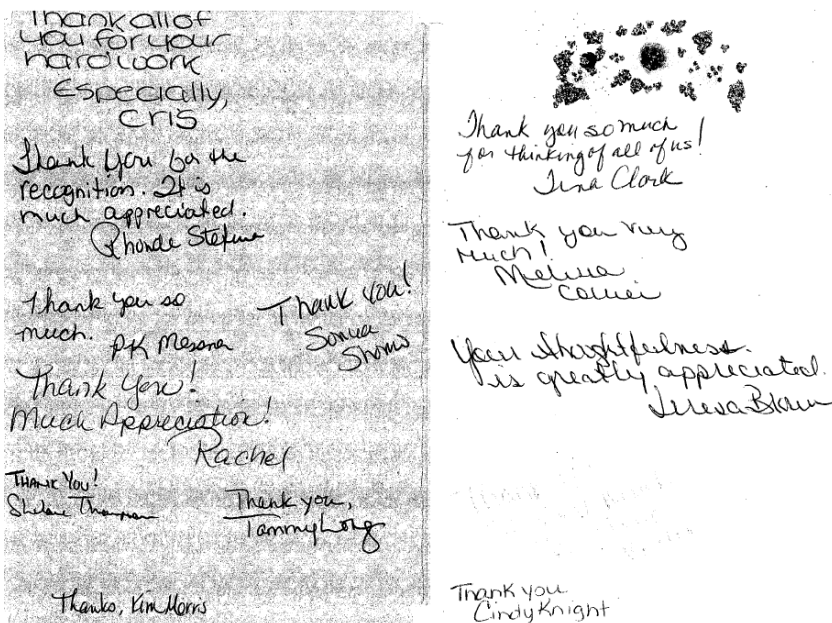 Thank all of
you for your
hard work
Especially,
Cris
Thank you for the
recognition. It is
much appreciated.
Rhonda
Thank you so
much. PK
Thank you!
Sonya
Thank you!
Much Appreciation!
Rachel
THANK YOU!
Thank you,
Tammy Long
Thanks, Kim Morris
Thank you so much
for thinking of all of us!
Tina Clark
Thank you very
much!
Melissa
Your thoughtfulness
is greatly appreciated.
Teresa Brown
Thank you
Cindy Knight